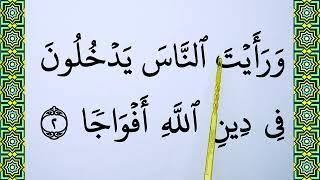 وَرَأَيۡتَ ٱلنَّاسَ يَدۡخُلُونَ
فِي دِينِ ٱللَّهِ أَفۡوَاجٗا ٢